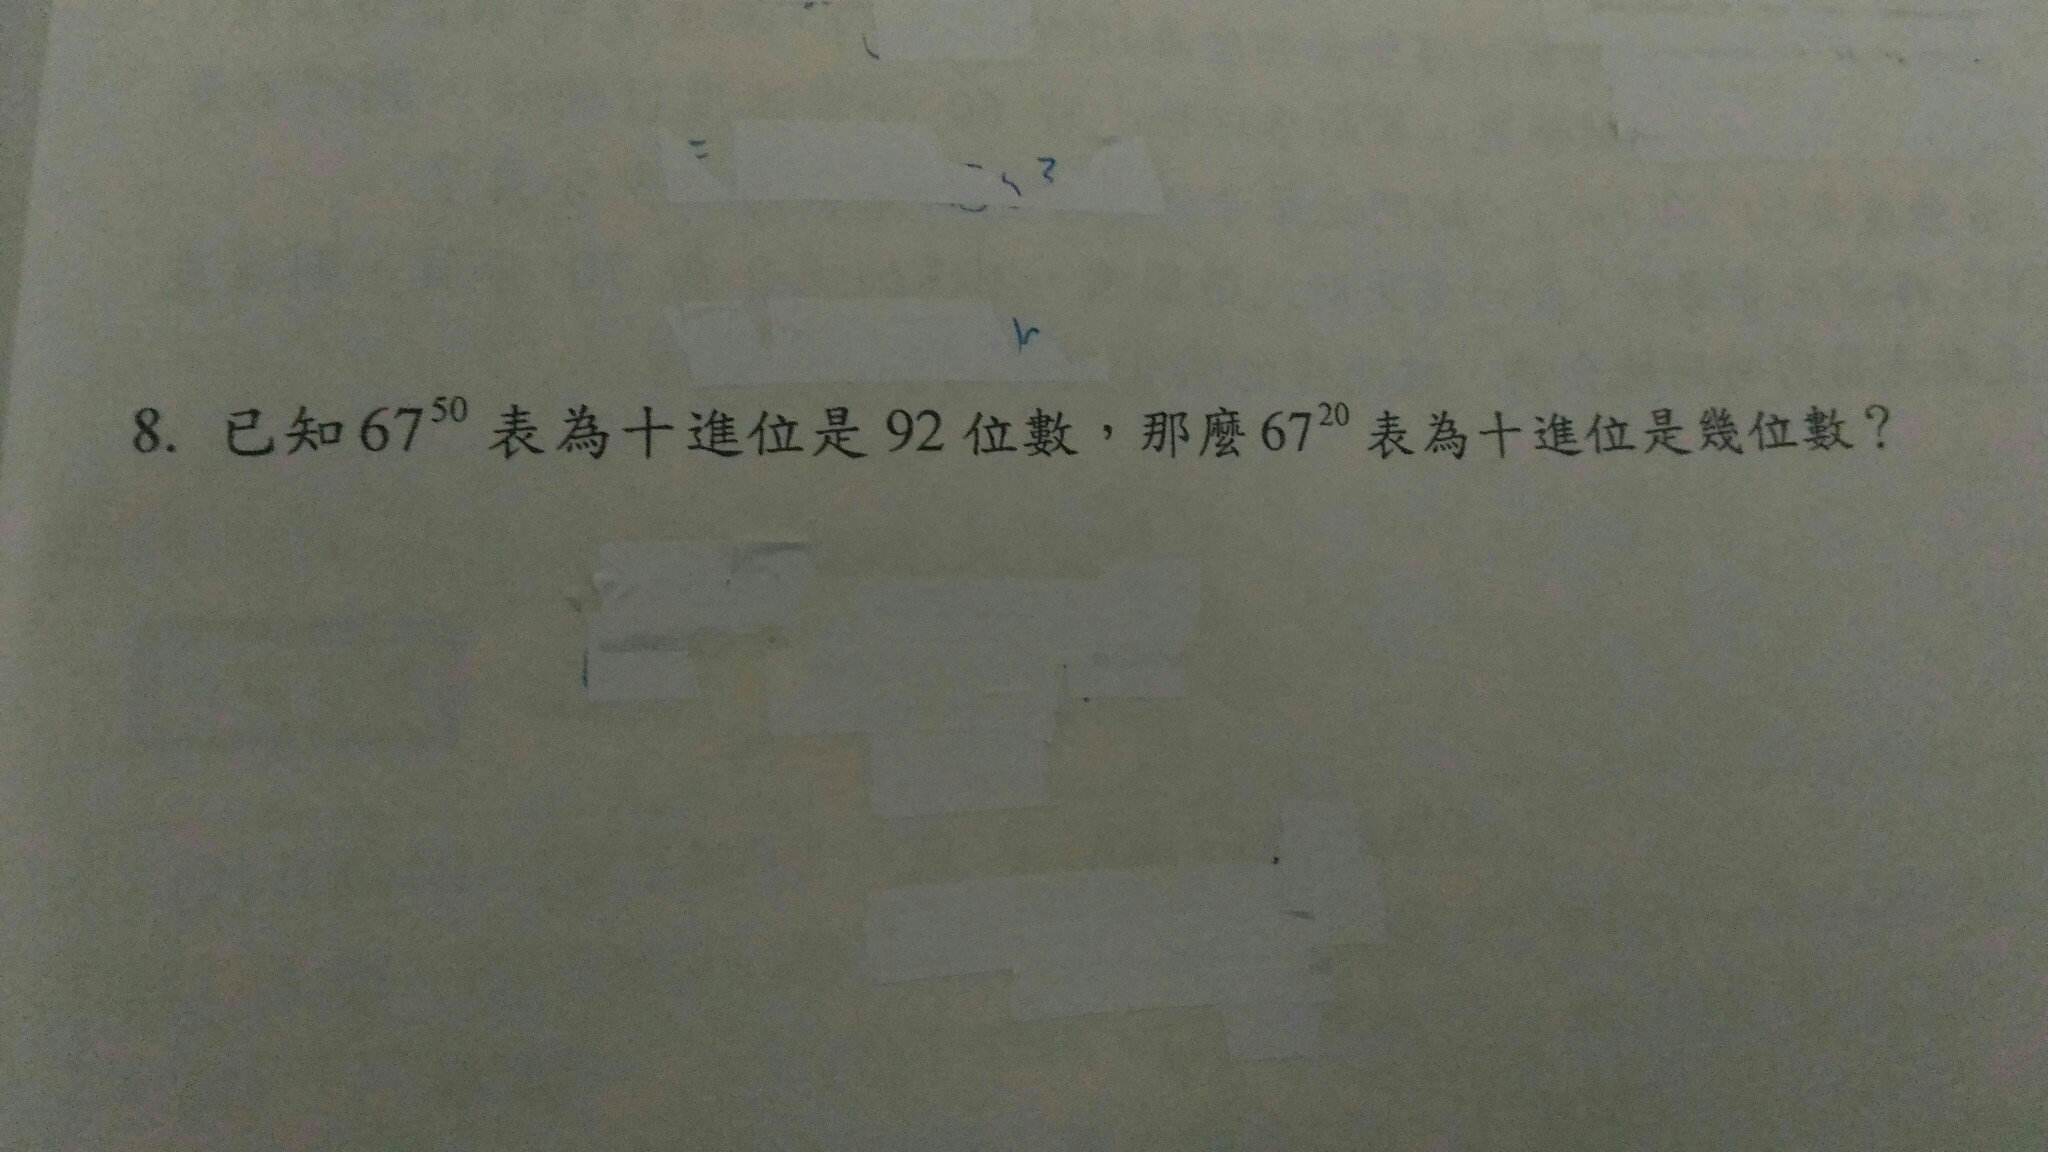 8. 已知 67⁵⁰ 表為十進位是 92 位數，那麼 67²⁰ 表為十進位是幾位數？